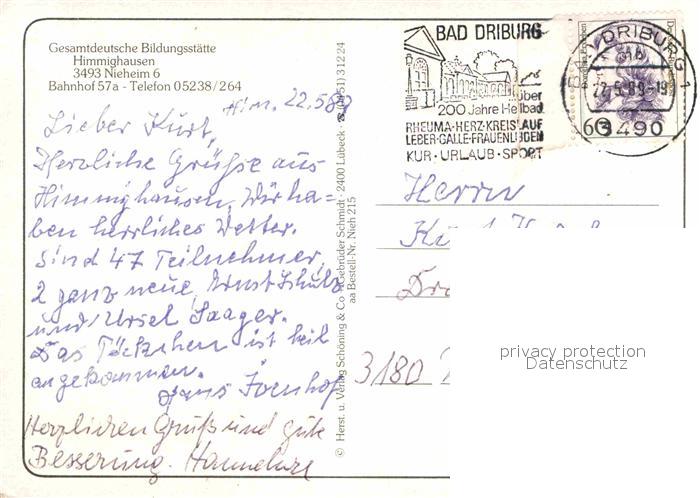 Gesamtdeutsche Bildungsstätte
Himmighausen
3493 Nieheim 6
Bahnhof 57a - Telefon 05238/264
Him. 22.5.89
Lieber Kurt,
Herzliche Grüße aus
Himmighausen, Wir ha=
ben herrliches Wetter.
Sind 47 Teilnehmer,
2 ganz neue, Ernst Schulz
und Ursel Saager.
Das Päckchen ist heil
angekommen.
Hans
Herzlichen Gruß und gute
Besserung. Hannelore
© Herst. u. Verlag Schöning & Co + Gebrüder Schmidt · 2400 Lübeck · ☎ (04 51) 3 12 24
aa Bestell-Nr. Nieh 215
BAD DRIBURG
über
200 Jahre Heilbad
RHEUMA·HERZ·KREISLAUF
LEBER·GALLE·FRAUENLEIDEN
KUR · URLAUB · SPORT
BAD DRIBURG 1
22.5.89-19
3490
60
Herrn
3180
privacy protection
Datenschutz